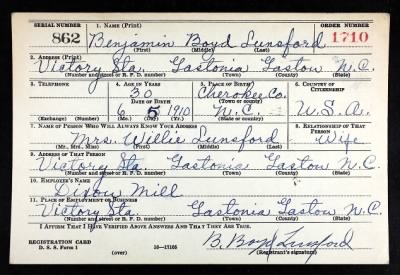 SERIAL NUMBER 1. NAME (Print) ORDER NUMBER
862 Benjamin Boyd Lunsford 1710
(First) (Middle) (Last)
2. ADDRESS (Print)
Victory Sta. Gastonia Gaston N.C.
(Number and street or R. F. D. number) (Town) (County) (State)
3. TELEPHONE 4. AGE IN YEARS 5. PLACE OF BIRTH 6. COUNTRY OF CITIZENSHIP
30 Cherokee Co.
DATE OF BIRTH (Town or county)
6 5 1910 N.C. U.S.A.
(Exchange) (Number) (Mo.) (Day) (Yr.) (State or country)
7. NAME OF PERSON WHO WILL ALWAYS KNOW YOUR ADDRESS 8. RELATIONSHIP OF THAT PERSON
Mrs. Willie Lunsford Wife
(Mr., Mrs., Miss) (First) (Middle) (Last)
9. ADDRESS OF THAT PERSON
Victory Sta. Gastonia Gaston N.C.
(Number and street or R. F. D. number) (Town) (County) (State)
10. EMPLOYER'S NAME
Dixon Mill
11. PLACE OF EMPLOYMENT OR BUSINESS
Victory Sta. Gastonia Gaston N.C.
(Number and street or R. F. D. number) (Town) (County) (State)
I AFFIRM THAT I HAVE VERIFIED ABOVE ANSWERS AND THAT THEY ARE TRUE.
REGISTRATION CARD B. Boyd Lunsford
D. S. S. Form 1 16—17105 (Registrant's signature)
(over)